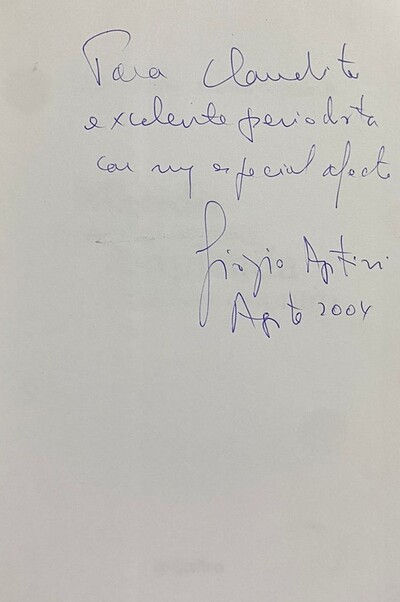 Para Claudita
excelente periodista
con muy especial afecto
Giorgio Antini
Agosto 2004